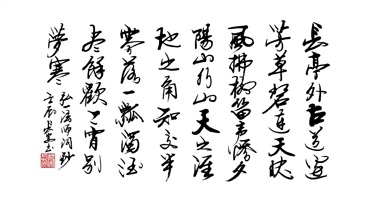 長亭外古道邊
芳草碧連天晚
風拂柳笛聲殘夕
陽山外山天之涯
地之角知交半
零落一瓢濁酒
尽餘歡今宵別
夢寒